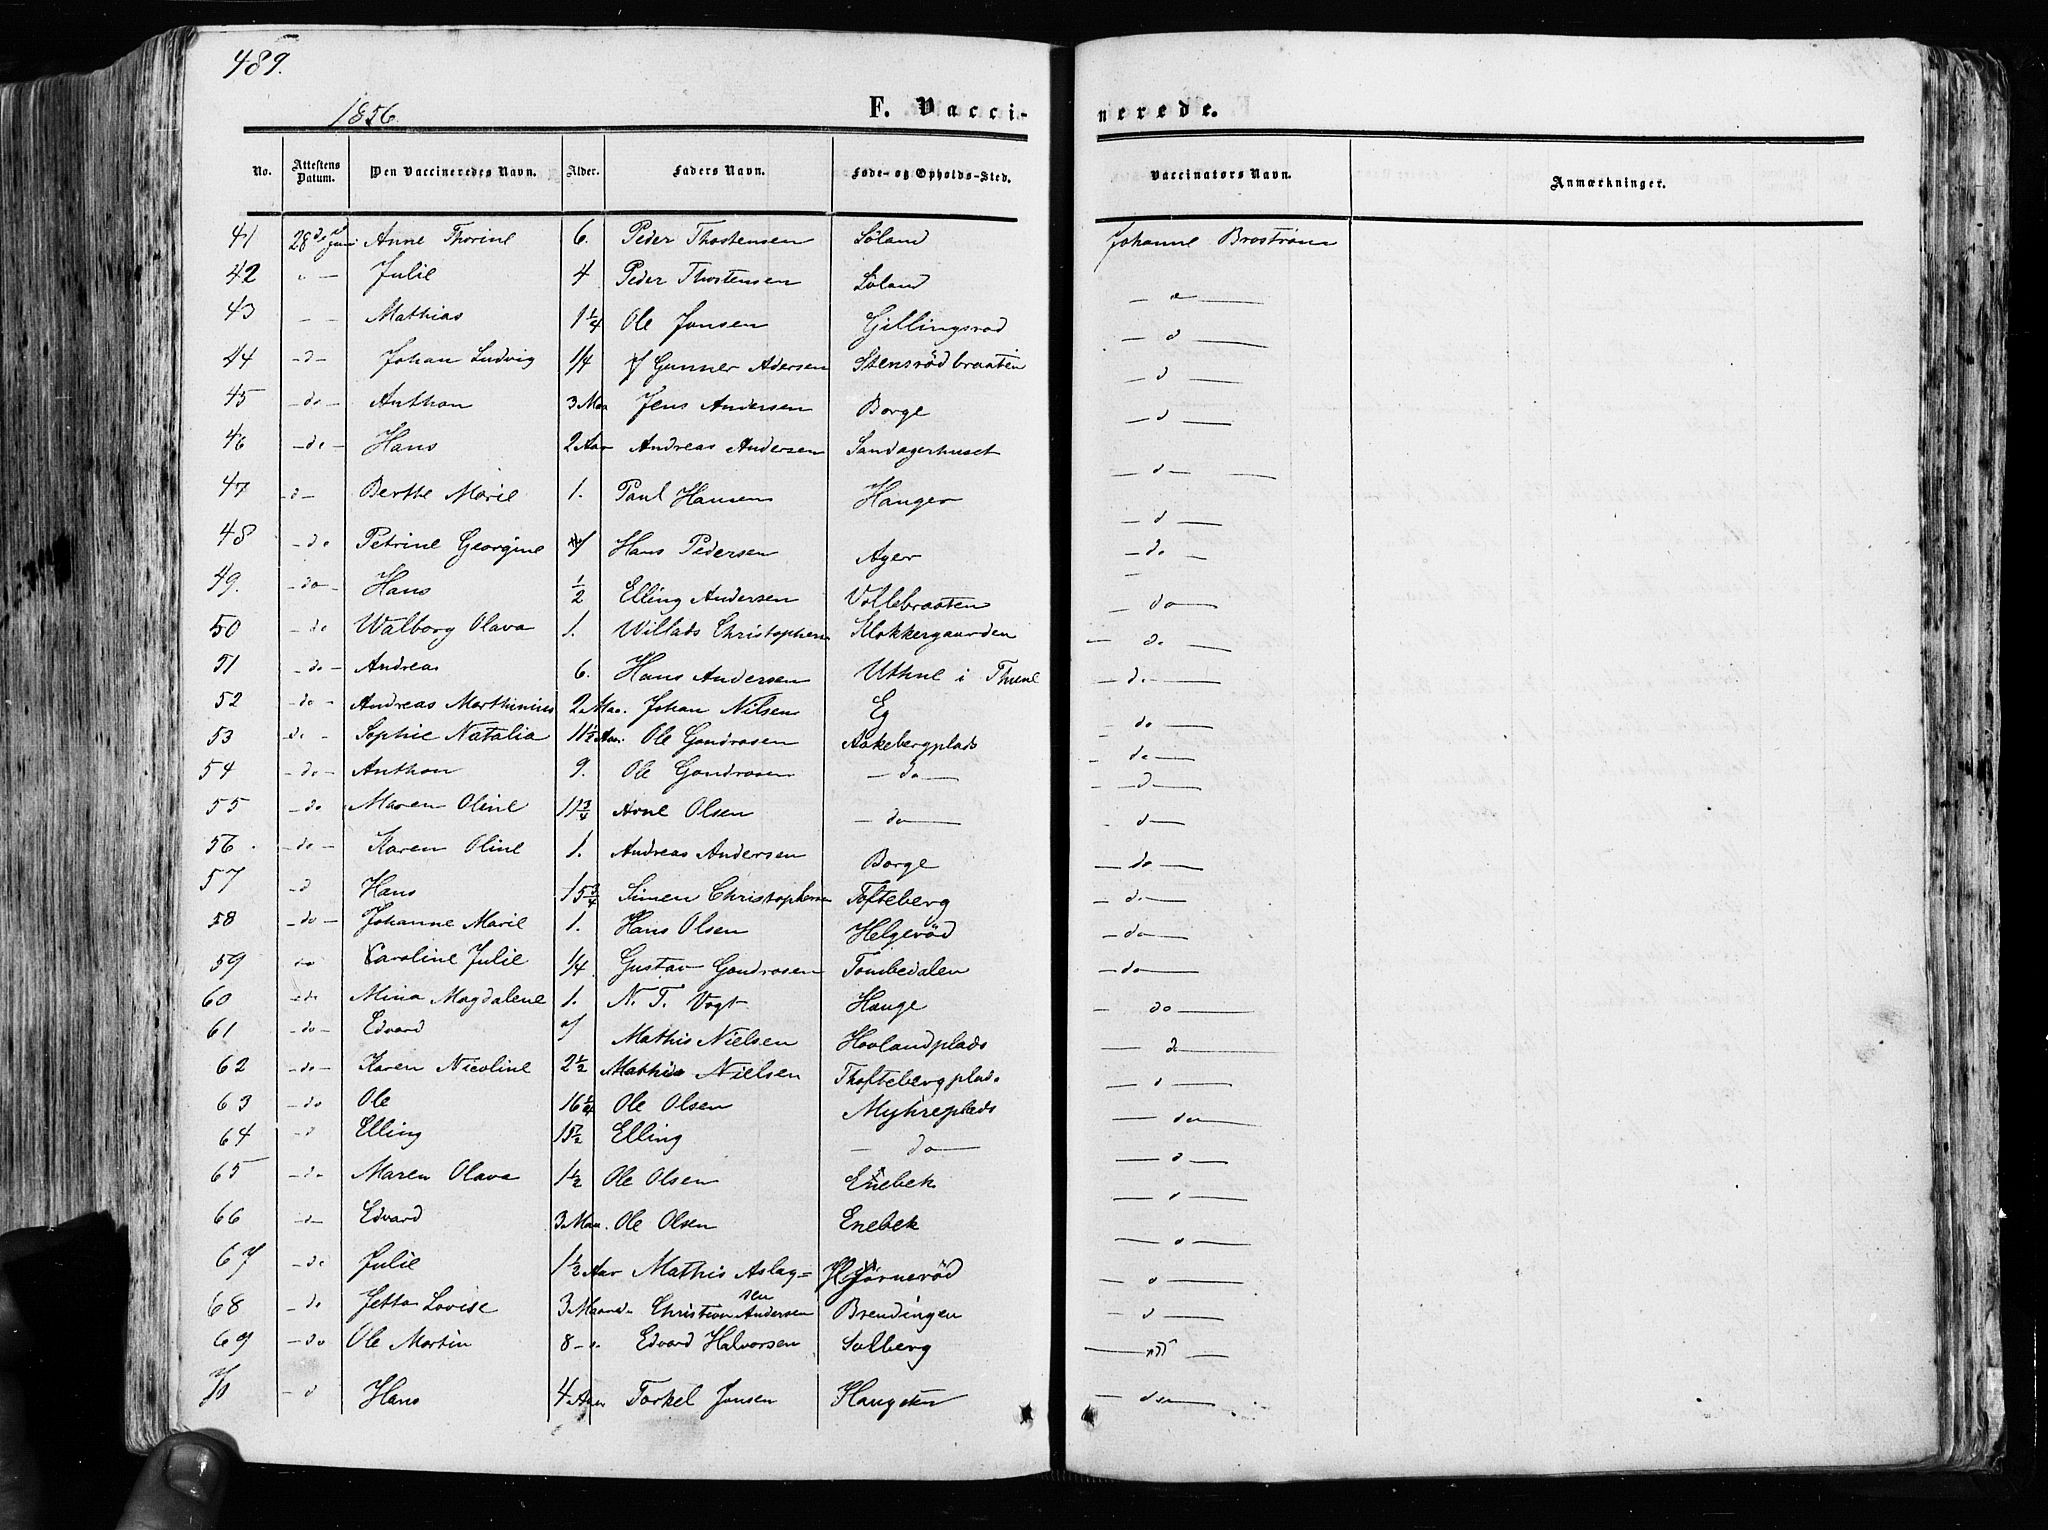 489.
1856.
F. Vacci- nerede.
No. Attestens Datum. Den Vaccineredes Navn. Alder. Faders Navn. Føde- og Opholds-Sted. Vaccinators Navn. Anmærkninger.
41 28de Juni Anne Thorine 6. Peder Thostensen Löland Johanne Broström
42 - - Julie 4 Peder Thostensen Löland - d -
43 - - Mathias 1 1/4 Ole Jonsen Gillingsrød - d -
44 - d - Johan Ludvig 1/4 Gunner Adersen Stensrödbraaten - d -
45 - do - Anthon 3 Maa Jens Andersen Borge - d -
46 - do - Hans 2 Aar Andreas Andersen Sandagerhuset - d -
47 - d - Berthe Marie 1. Paul Hansen Hanger - d -
48 - do Petrine Georgine Hans Pedersen Ager - do -
49. - do - Hans 1/2 Elling Andersen Vollebraaten - do -
50 - do Walborg Olava 1. Willads Christophersen Klokkergaarden - do -
51 - do - Andreas 6. Hans Andersen Uthne i Thune - d. -
52 - do - Andreas Marthinius 2 Maa. Johan Nilsen Eg - do -
53 - do - Sophie Natalia 11 1/2 Aar. Ole Gondrosen Aakebergplads - do -
54 - do - Anthon 9. Ole Gondrosen - do - - d -
55 - do Maren Oline 11 3/4 Arne Olsen - do - - do -
56. - do - Karen Oline 1. Andreas Andersen Borge - do -
57 - d Hans 15 3/4 Simen Christophersen Tofteberg - do -
58 - do - Johanne Marie 1. Hans Olsen Helgeröd - do -
59 do Caroline Julie 1/4 Gustav Gondrosen Tombedalen - do -
60 - do Mina Magdalene 1. N. T. Vogt Hauge - do -
61 - do - Edvard Mathis Nielsen Hovlandplads - d -
62 - do - Karen Nicoline 2 1/2 Mathis Nielsen Thoftebergplads - d -
63 - do Ole 16 Ole Olsen Myhreplads - do -
64 - d Elling 15 Elling - do - - d -
65 - do Maren Olava 1 1/2 Ole Olsen Enebek - d -
66 - do - Edvard 3 Maa. Ole Olsen Enebek - d -
67 - do Julie 1 1/2 Aar Mathis Aslag= Hjørneröd - d -
68 - do Jetta Lovise 3 Maaned. sen Christian Andersen Brendingen - d -
69 - do Ole Martin 8 - do Edvard Halvorsen Solberg
70 - d Hans 4 Aar Torkel Jonsen Haugsten - do -